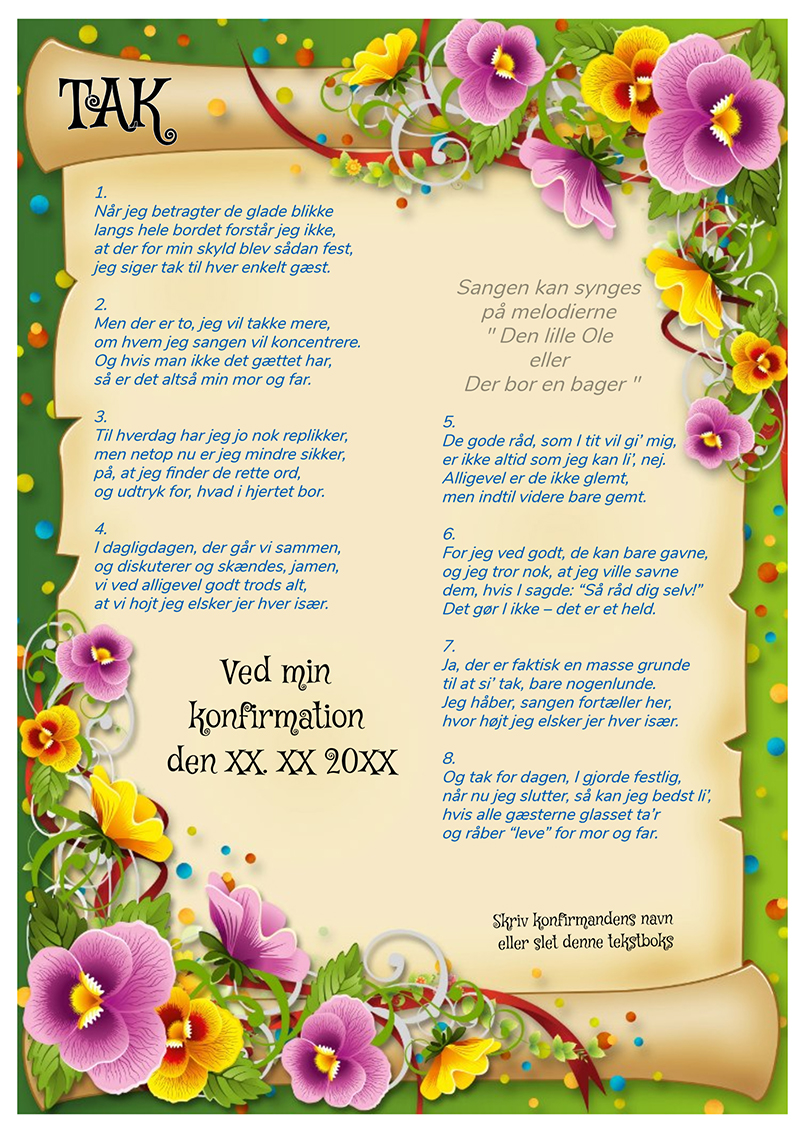 TAK
1.
Når jeg betragter de glade blikke
langs hele bordet forstår jeg ikke,
at der for min skyld blev sådan fest,
jeg siger tak til hver enkelt gæst.
2.
Men der er to, jeg vil takke mere,
om hvem jeg sangen vil koncentrere.
Og hvis man ikke det gættet har,
så er det altså min mor og far.
3.
Til hverdag har jeg jo nok replikker,
men netop nu er jeg mindre sikker,
på, at jeg finder de rette ord,
og udtryk for, hvad i hjertet bor.
4.
I dagligdagen, der går vi sammen,
og diskuterer og skændes, jamen,
vi ved alligevel godt trods alt,
at vi hojt jeg elsker jer hver især.
Ved min
konfirmation
den XX. XX 20XX
Sangen kan synges
på melodierne
" Den lille Ole
eller
Der bor en bager "
5.
De gode råd, som I tit vil gi’ mig,
er ikke altid som jeg kan li’, nej.
Alligevel er de ikke glemt,
men indtil videre bare gemt.
6.
For jeg ved godt, de kan bare gavne,
og jeg tror nok, at jeg ville savne
dem, hvis I sagde: “Så råd dig selv!”
Det gør I ikke – det er et held.
7.
Ja, der er faktisk en masse grunde
til at si’ tak, bare nogenlunde.
Jeg håber, sangen fortæller her,
hvor højt jeg elsker jer hver især.
8.
Og tak for dagen, I gjorde festlig,
når nu jeg slutter, så kan jeg bedst li’,
hvis alle gæsterne glasset ta’r
og råber “leve” for mor og far.
Skriv konfirmandens navn
eller slet denne tekstboks